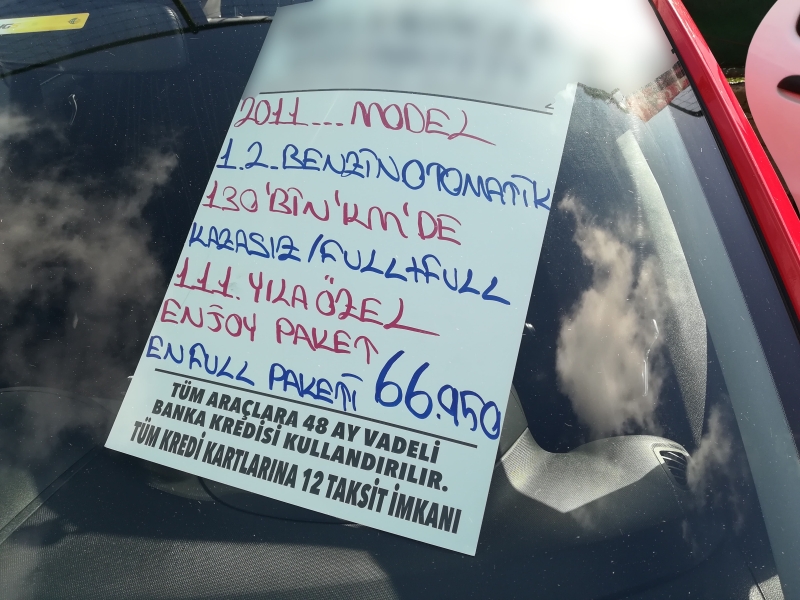 2011... MODEL
1.2. BENZİN OTOMATİK
130'BİN'KM'DE
KAZASIZ/FULL+FULL
111. YILA ÖZEL
ENJOY PAKET
EN FULL PAKETİ 66.950
TÜM ARAÇLARA 48 AY VADELİ
BANKA KREDİSİ KULLANDIRILIR.
TÜM KREDİ KARTLARINA 12 TAKSİT İMKANI